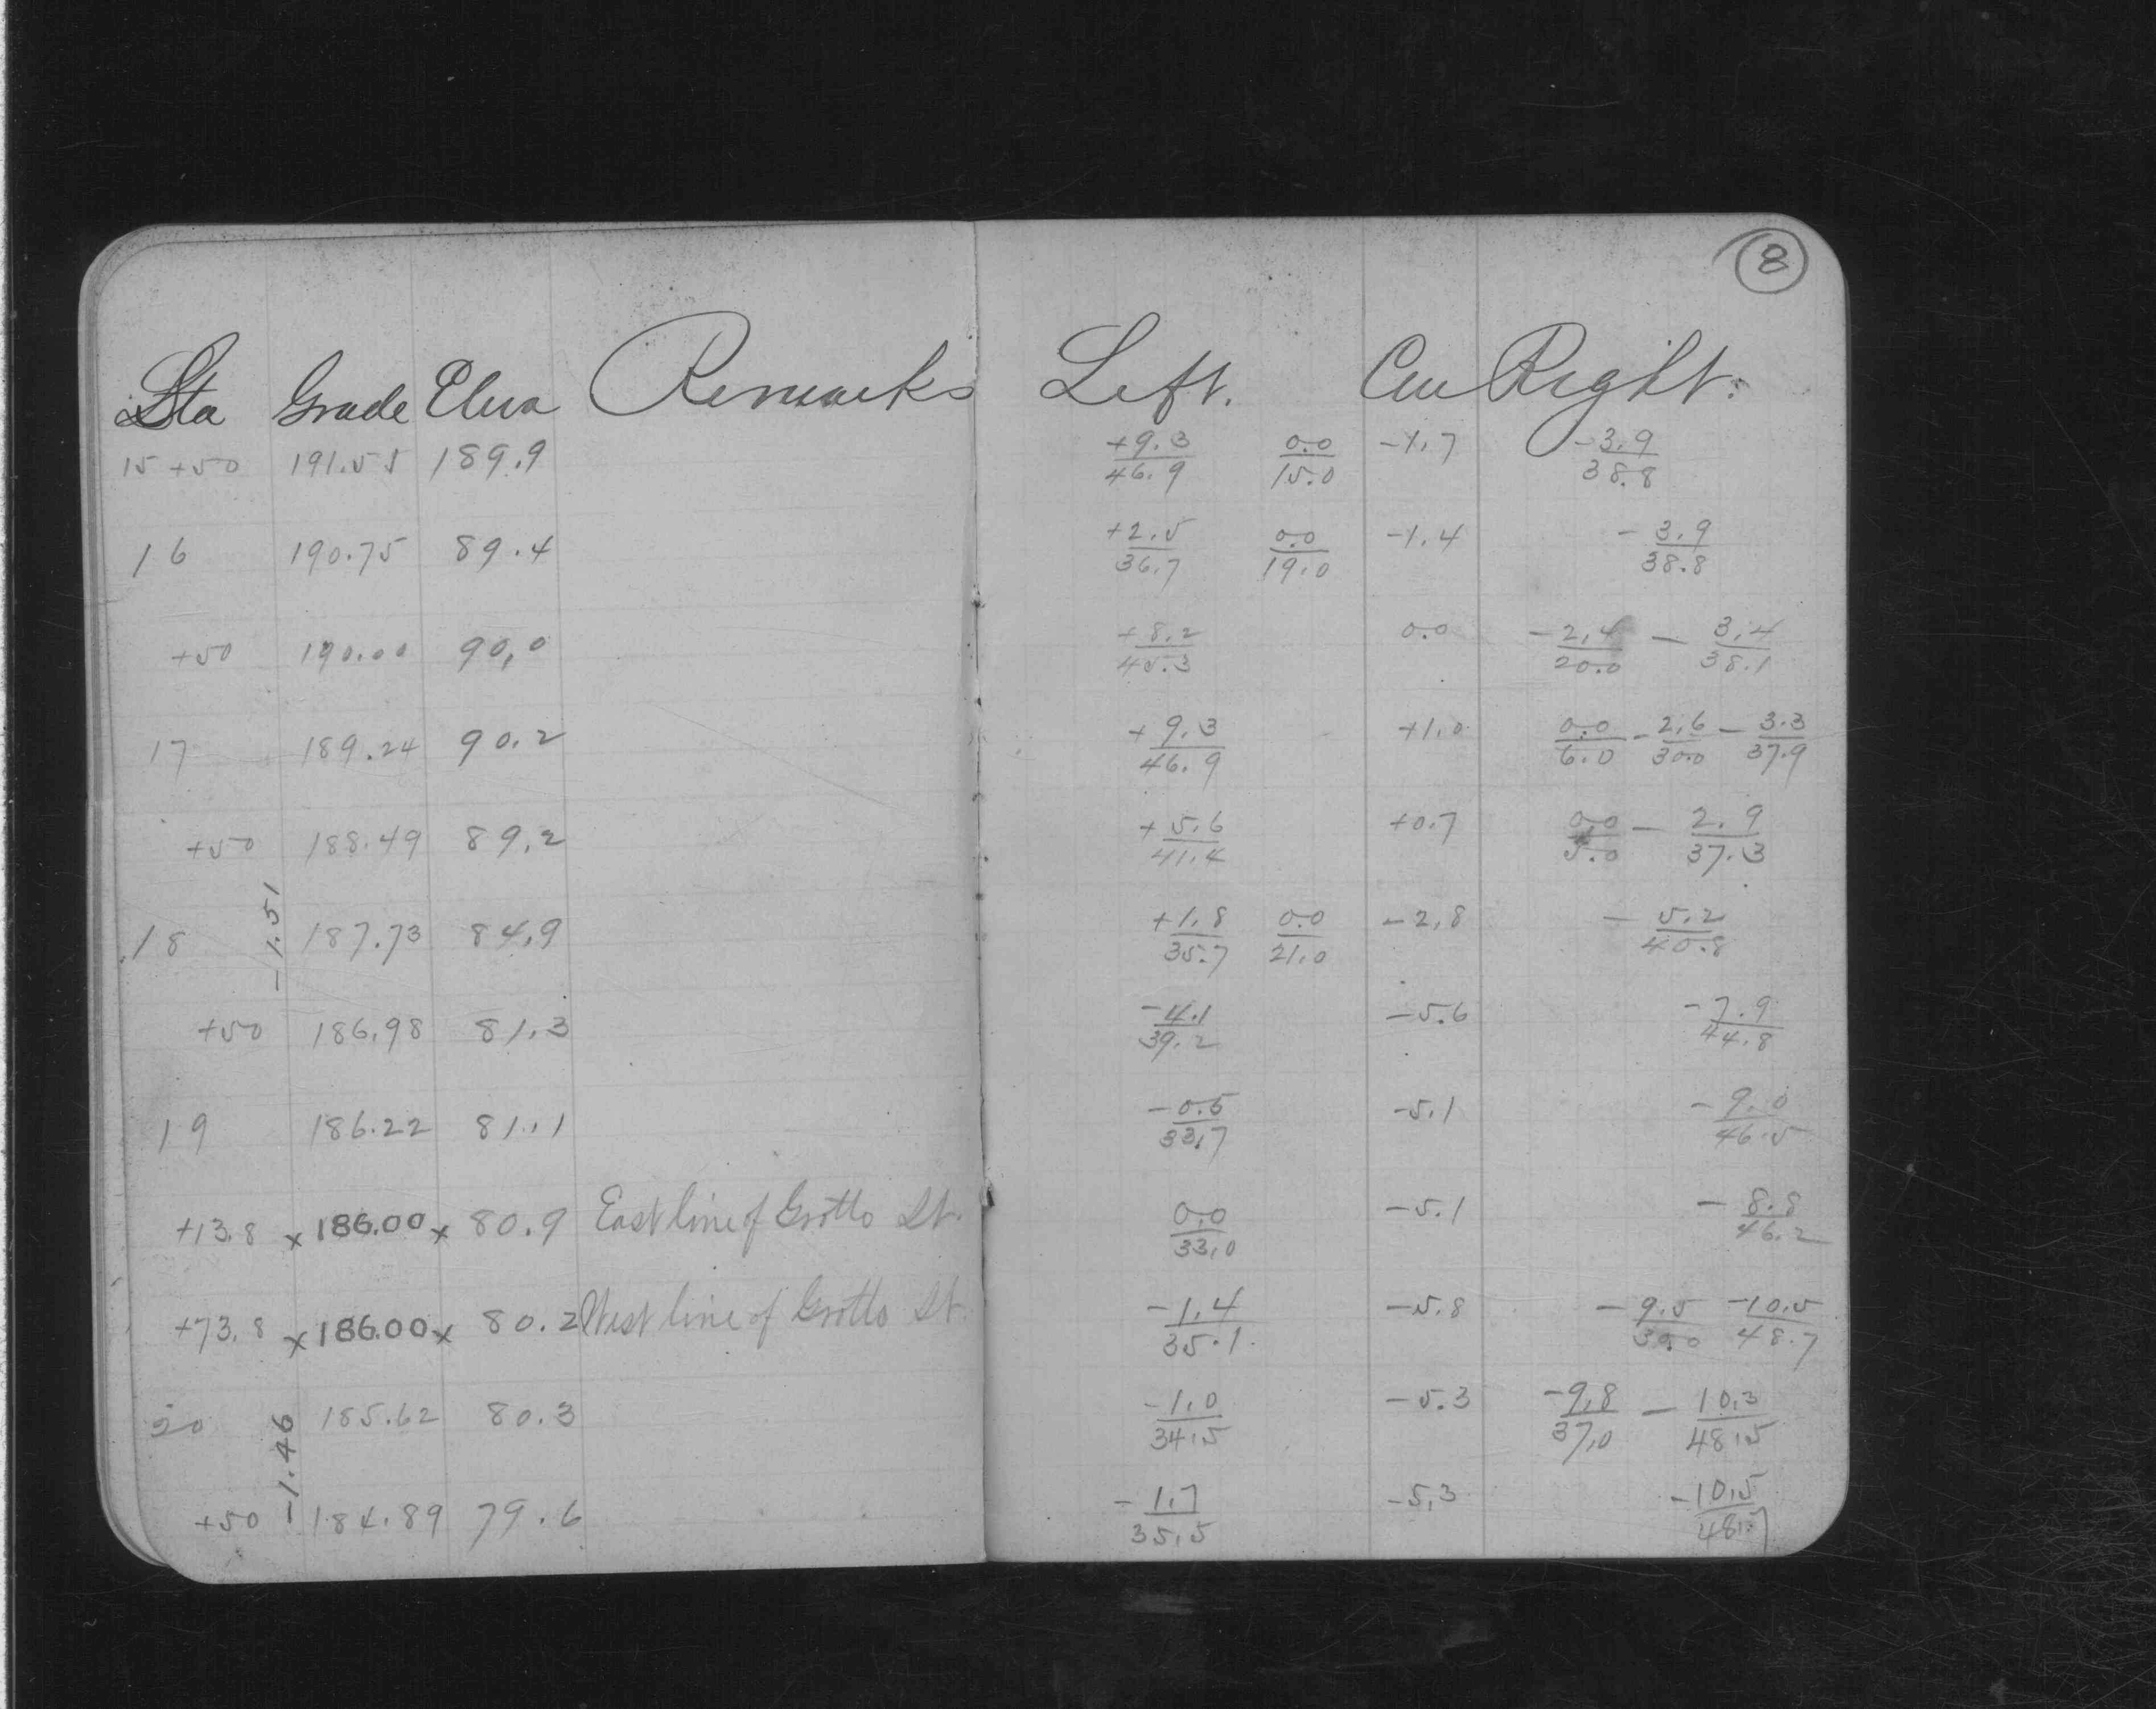 8
Sta Grade Eleva Remarks Left. Cen Right.
15+50 191.55 189.9 +9.3/46.9 0.0/15.0 -1.7 -3.9/38.8
16 190.75 89.4 +2.5/36.7 0.0/19.0 -1.4 -3.9/38.8
+50 190.00 90.0 +8.2/45.3 0.0 -2.4/20.0 -3.4/38.1
17 189.24 90.2 +9.3/46.9 +1.0 0.0/6.0 -2.6/30.0 -3.3/37.9
+50 188.49 89.2 +5.6/41.4 +0.7 0.0/5.0 -2.9/37.3
-1.51
18 187.73 84.9 +1.8/35.7 0.0/21.0 -2.8 -5.2/40.8
+50 186.98 81.3 -4.1/39.2 -5.6 -7.9/44.8
19 186.22 81.1 -0.5/33.7 -5.1 -9.0/46.5
+13.8 x 186.00 x 80.9 East line of Grotto St. 0.0/33.0 -5.1 -8.8/46.2
+73.8 x 186.00 x 80.2 West line of Grotto St. -1.4/35.1 -5.8 -9.5/30.0 -10.5/48.7
20 185.62 80.3 -1.0/34.5 -5.3 -9.8/37.0 -10.3/48.5
-1.46
+50 184.89 79.6 -1.7/35.5 -5.3 -10.5/48.7